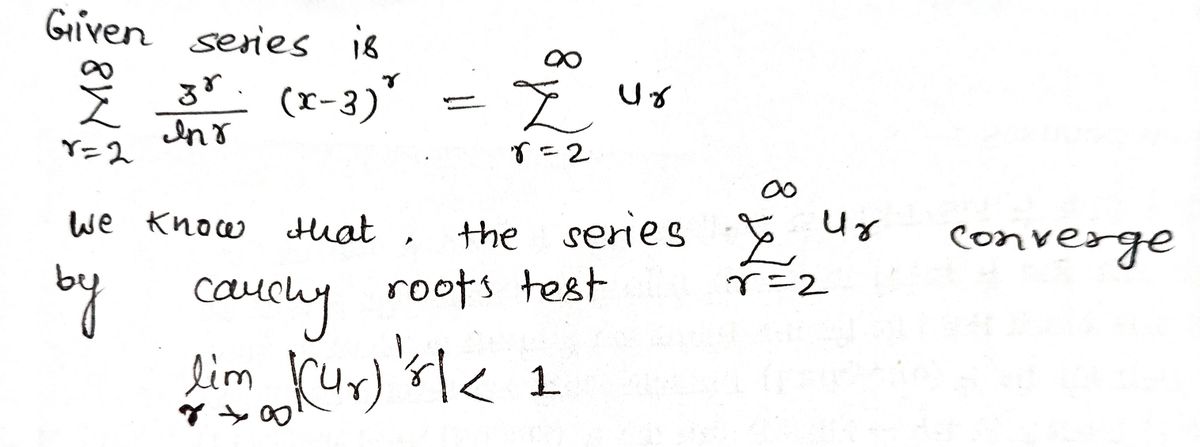 Given series is
∞ ∑ r=2 3^r / ln r . (x-3)^r = ∞ ∑ r=2 u_r
We know that, the series ∞ ∑ r=2 u_r converge
by cauchy roots test
lim r→∞ |(u_r)^1/r| < 1